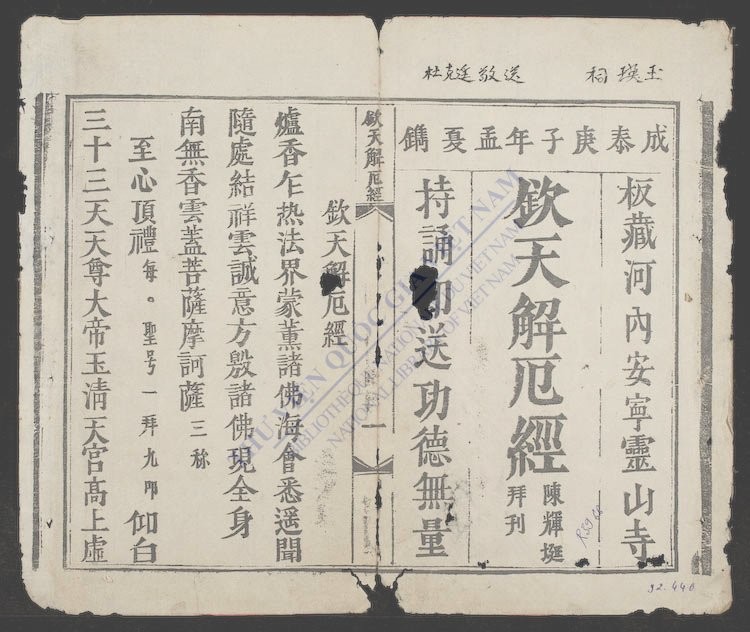 玉瑛祠 送敬 杜克
成泰庚子年孟夏鐫
板藏河內安寧靈山寺
欽天解厄經
陳輝
拜刊
持誦印送功德無量
欽天解厄經
一
欽天解厄經
爐香乍热法界蒙薰諸佛海會悉遥聞
隨處結祥雲誠意方殷諸佛現全身
南無香雲蓋菩薩摩訶薩 三称
至心頂禮 每。聖号一拜九叩 仰白
三十三天天尊大帝玉清天宮高上虛
THƯ VIỆN QUỐC GIA VIỆT NAM
BIBLIOTHÈQUE NATIONALE DU VIETNAM
NATIONAL LIBRARY OF VIETNAM